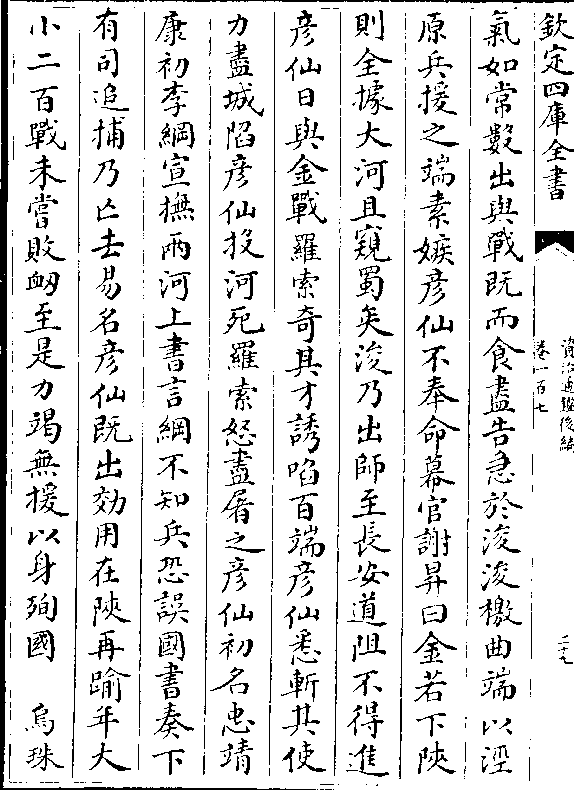 欽定四庫全書
資治通鑑後編
卷一百七
二十九
氣如常數出與戰既而食盡告急於浚浚檄曲端以涇
原兵援之端素嫉彦仙不奉命幕官謝昇曰金若下陜
則全據大河且窺蜀矣浚乃出師至長安道阻不得進
彦仙日與金戰羅索奇其才誘啗百端彦仙悉斬其使
力盡城陷彦仙投河死羅索怒盡屠之彦仙初名忠靖
康初李綱宣撫兩河上書言綱不知兵恐誤國書奏下
有司追捕乃亡去易名彦仙既出効用在陜再踰年大
小二百戰未嘗敗衂至是力竭無援以身殉國　烏珠